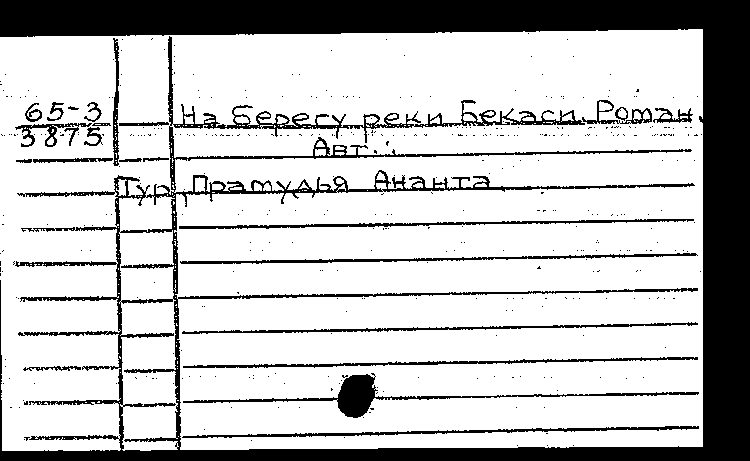 65-3 На берегу реки Бекаси. Роман.
3875 Авт.:
Тур, Прамудья Ананта